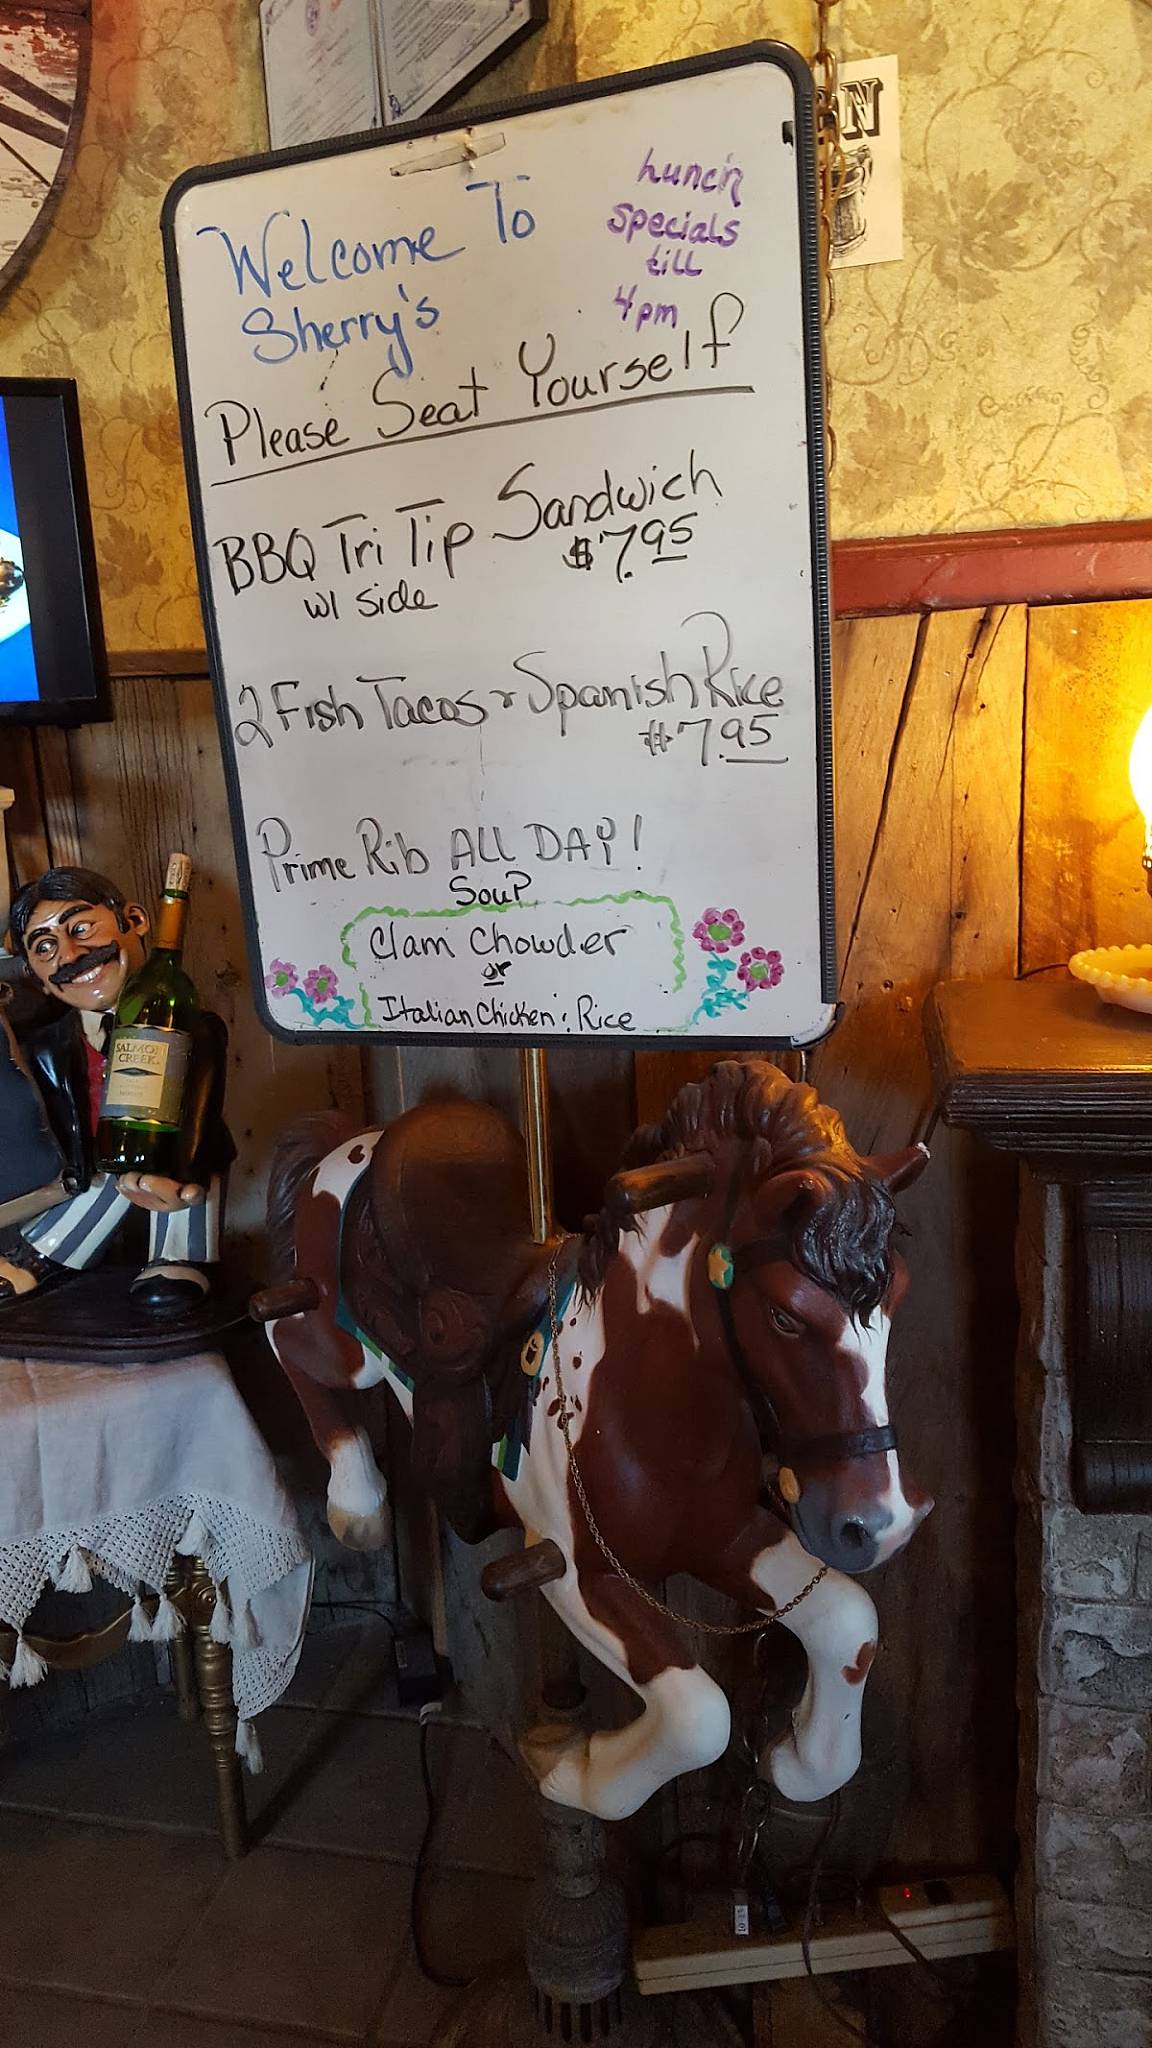 Welcome To
Sherry's
lunch
specials
till
4pm
Please Seat Yourself
BBQ Tri Tip Sandwich
w/ side $7.95
2 Fish Tacos & Spanish Rice
$7.95
Prime Rib ALL DAY!
Soup
Clam Chowder
or
Italian Chicken & Rice
SALMON
CREEK